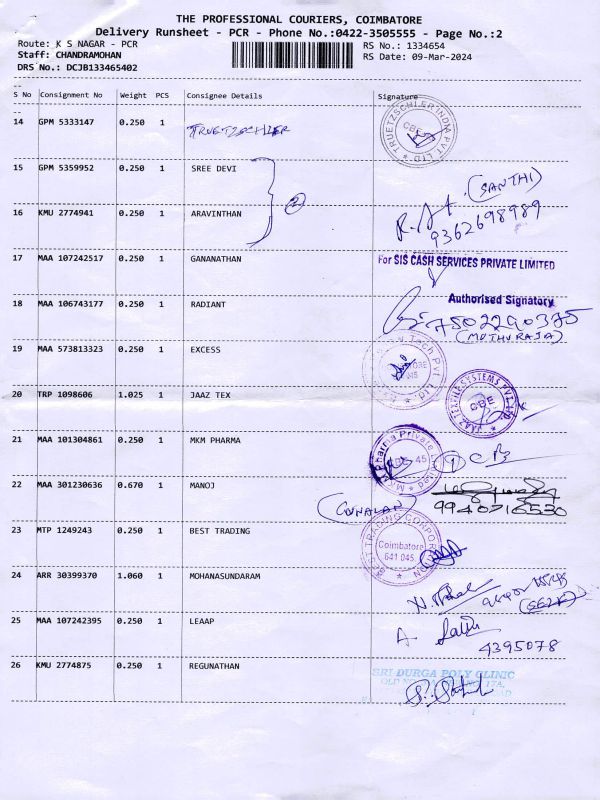 THE PROFESSIONAL COURIERS, COIMBATORE
Delivery Runsheet - PCR - Phone No.:0422-3505555 - Page No.:2
Route: K S NAGAR - PCR
RS No.: 1334654
Staff: CHANDRAMOHAN
RS Date: 09-Mar-2024
DRS No.: DCJB133465402
S No Consignment No Weight PCS Consignee Details Signature
14 GPM 5333147 0.250 1 TRUETZSCHLER
TRUETZSCHLER INDIA PVT LTD CBE
15 GPM 5359952 0.250 1 SREE DEVI
(SANTHI)
2
16 KMU 2774941 0.250 1 ARAVINTHAN
9362698989
17 MAA 107242517 0.250 1 GANANATHAN
For SIS CASH SERVICES PRIVATE LIMITED
18 MAA 106743177 0.250 1 RADIANT
Authorised Signatory
7502290375
(MUTHURAJA)
19 MAA 573813323 0.250 1 EXCESS
Tech Pvt. Ltd.
20 TRP 1098606 1.025 1 JAAZ TEX
JAAZ TEXTILE SYSTEMS PVT. LTD. CBE
21 MAA 101304861 0.250 1 MKM PHARMA
MKM Pharma Private Limited
22 MAA 301230636 0.670 1 MANOJ
(GUNALAN)
9940716530
23 MTP 1249243 0.250 1 BEST TRADING
BEST TRADING CORPORATION
Coimbatore
641 045
24 ARR 30399370 1.060 1 MOHANASUNDARAM
25 MAA 107242395 0.250 1 LEAAP
4395078
26 KMU 2774875 0.250 1 REGUNATHAN
SRI DURGA POLY CLINIC